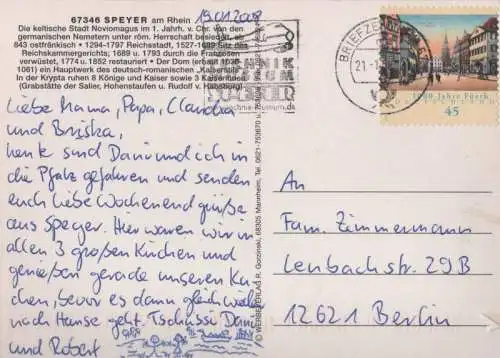 67346 SPEYER am Rhein
Die keltische Stadt Noviomagus im 1. Jahrh. v. Chr. von den
germanischen Nemetern unter röm. Herrschaft besiedelt, ab
843 ostfränkisch • 1294-1797 Reichsstadt, 1527-1689 Sitz des
Reichskammergerichts; 1689 u. 1793 durch die Franzosen
verwüstet, 1774 u. 1852 restauriert • Der Dom (erbaut 1030-
1061) ein Hauptwerk des deutsch-romanischen „Kaiserstils"
In der Krypta ruhen 8 Könige und Kaiser sowie 3 Kaiserinnen
(Grabstätte der Salier, Hohenstaufen u. Rudolf v. Habsburg)
19.01.2008
Liebe Mama, Papa, Claudia
und
heute sind Dani und ich in
die Pfalz gefahren und senden
euch liebe Wochenendgrüße
aus Speyer. Hier waren wir in
allen 3 großen Kirchen und
genießen gerade unseren Ku-
chen, bevor es dann gleich wieder
nach Hause geht. Tschüssi Dani
und Robert
© WERBEVERLAG R. Goczinski, 68305 Mannheim, Tel. 0621-753670 u.
TECHNIK
MUSEUM
SPEYER
BRIEFZE
21.-1
1000 Jahre Fürth
45
An
Fam. Zimmermann
Lenbachstr. 29B
12621 Berlin